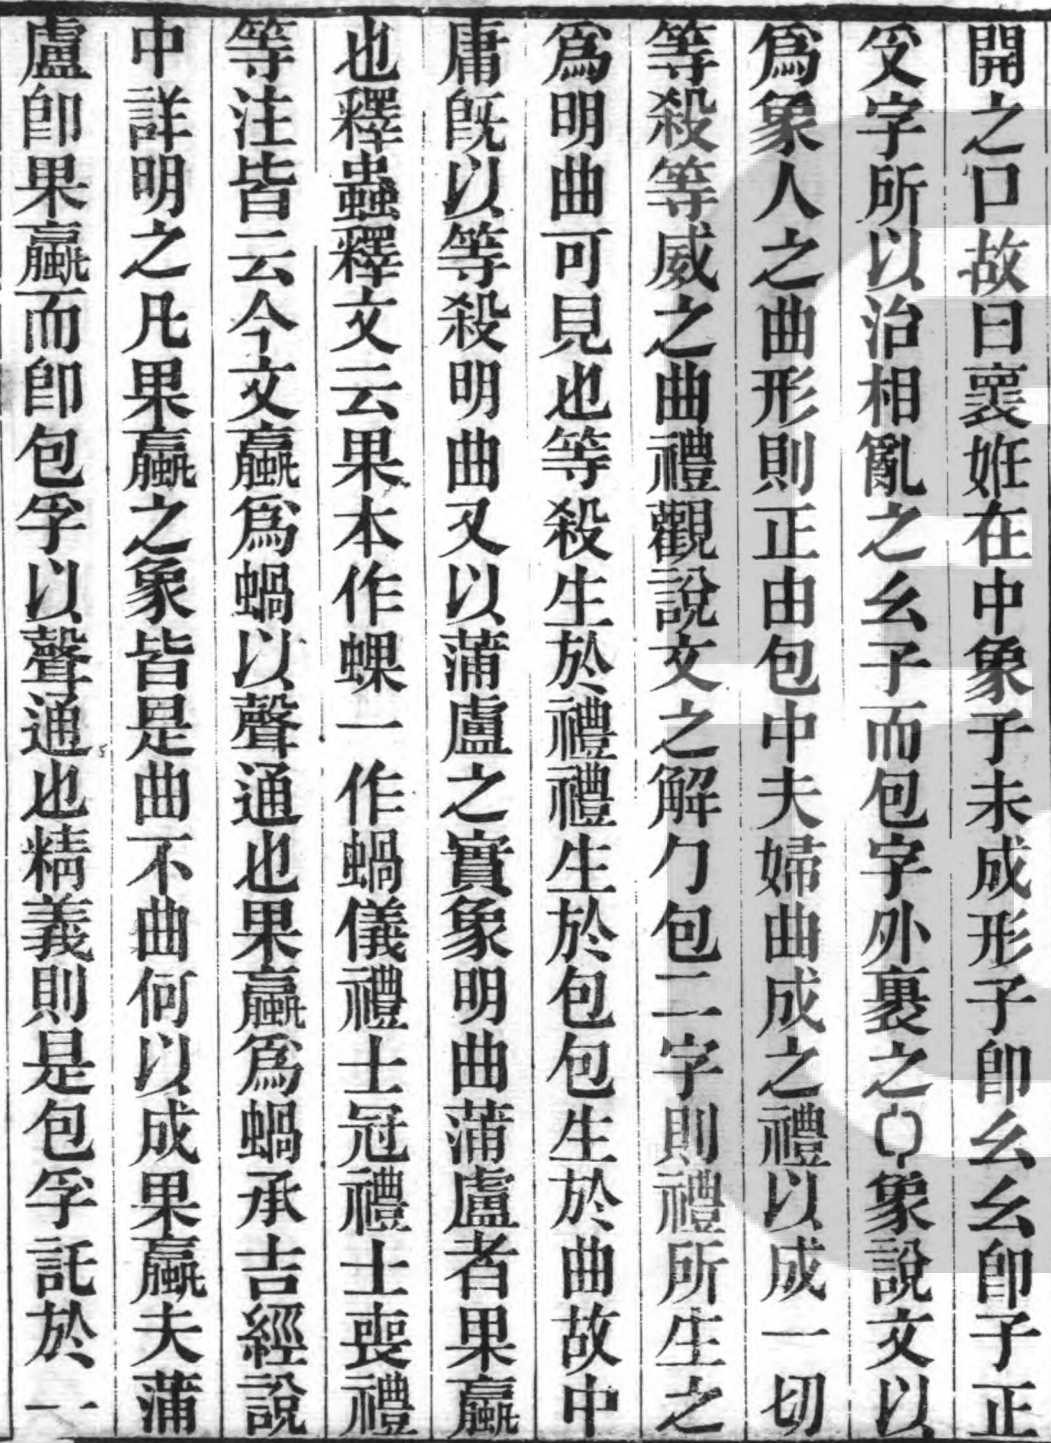 開之口故曰裹姙在中象子未成形子卽幺幺卽子正
𤔔字所以治相亂之幺子而包字外裹之象說文以
爲象人之曲形則正由包中夫婦曲成之禮以成一切
等殺等威之曲禮觀說文之解勹包二字則禮所生之
爲明曲可見也等殺生於禮禮生於包包生於曲故中
庸旣以等殺明曲又以蒲盧之實象明曲蒲盧者果蠃
也釋蟲釋文云果本作蜾一作蝸儀禮士冠禮士喪禮
等注皆云今文蠃爲蝸以聲通也果蠃爲蝸承吉經說
中詳明之凡果蠃之象皆是曲不曲何以成果蠃夫蒲
盧卽果蠃而卽包孚以聲通也精義則是包孚託於一